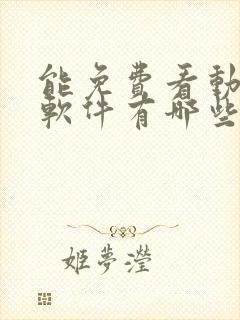 能免費看動
軟件有哪些
姬夢瀅